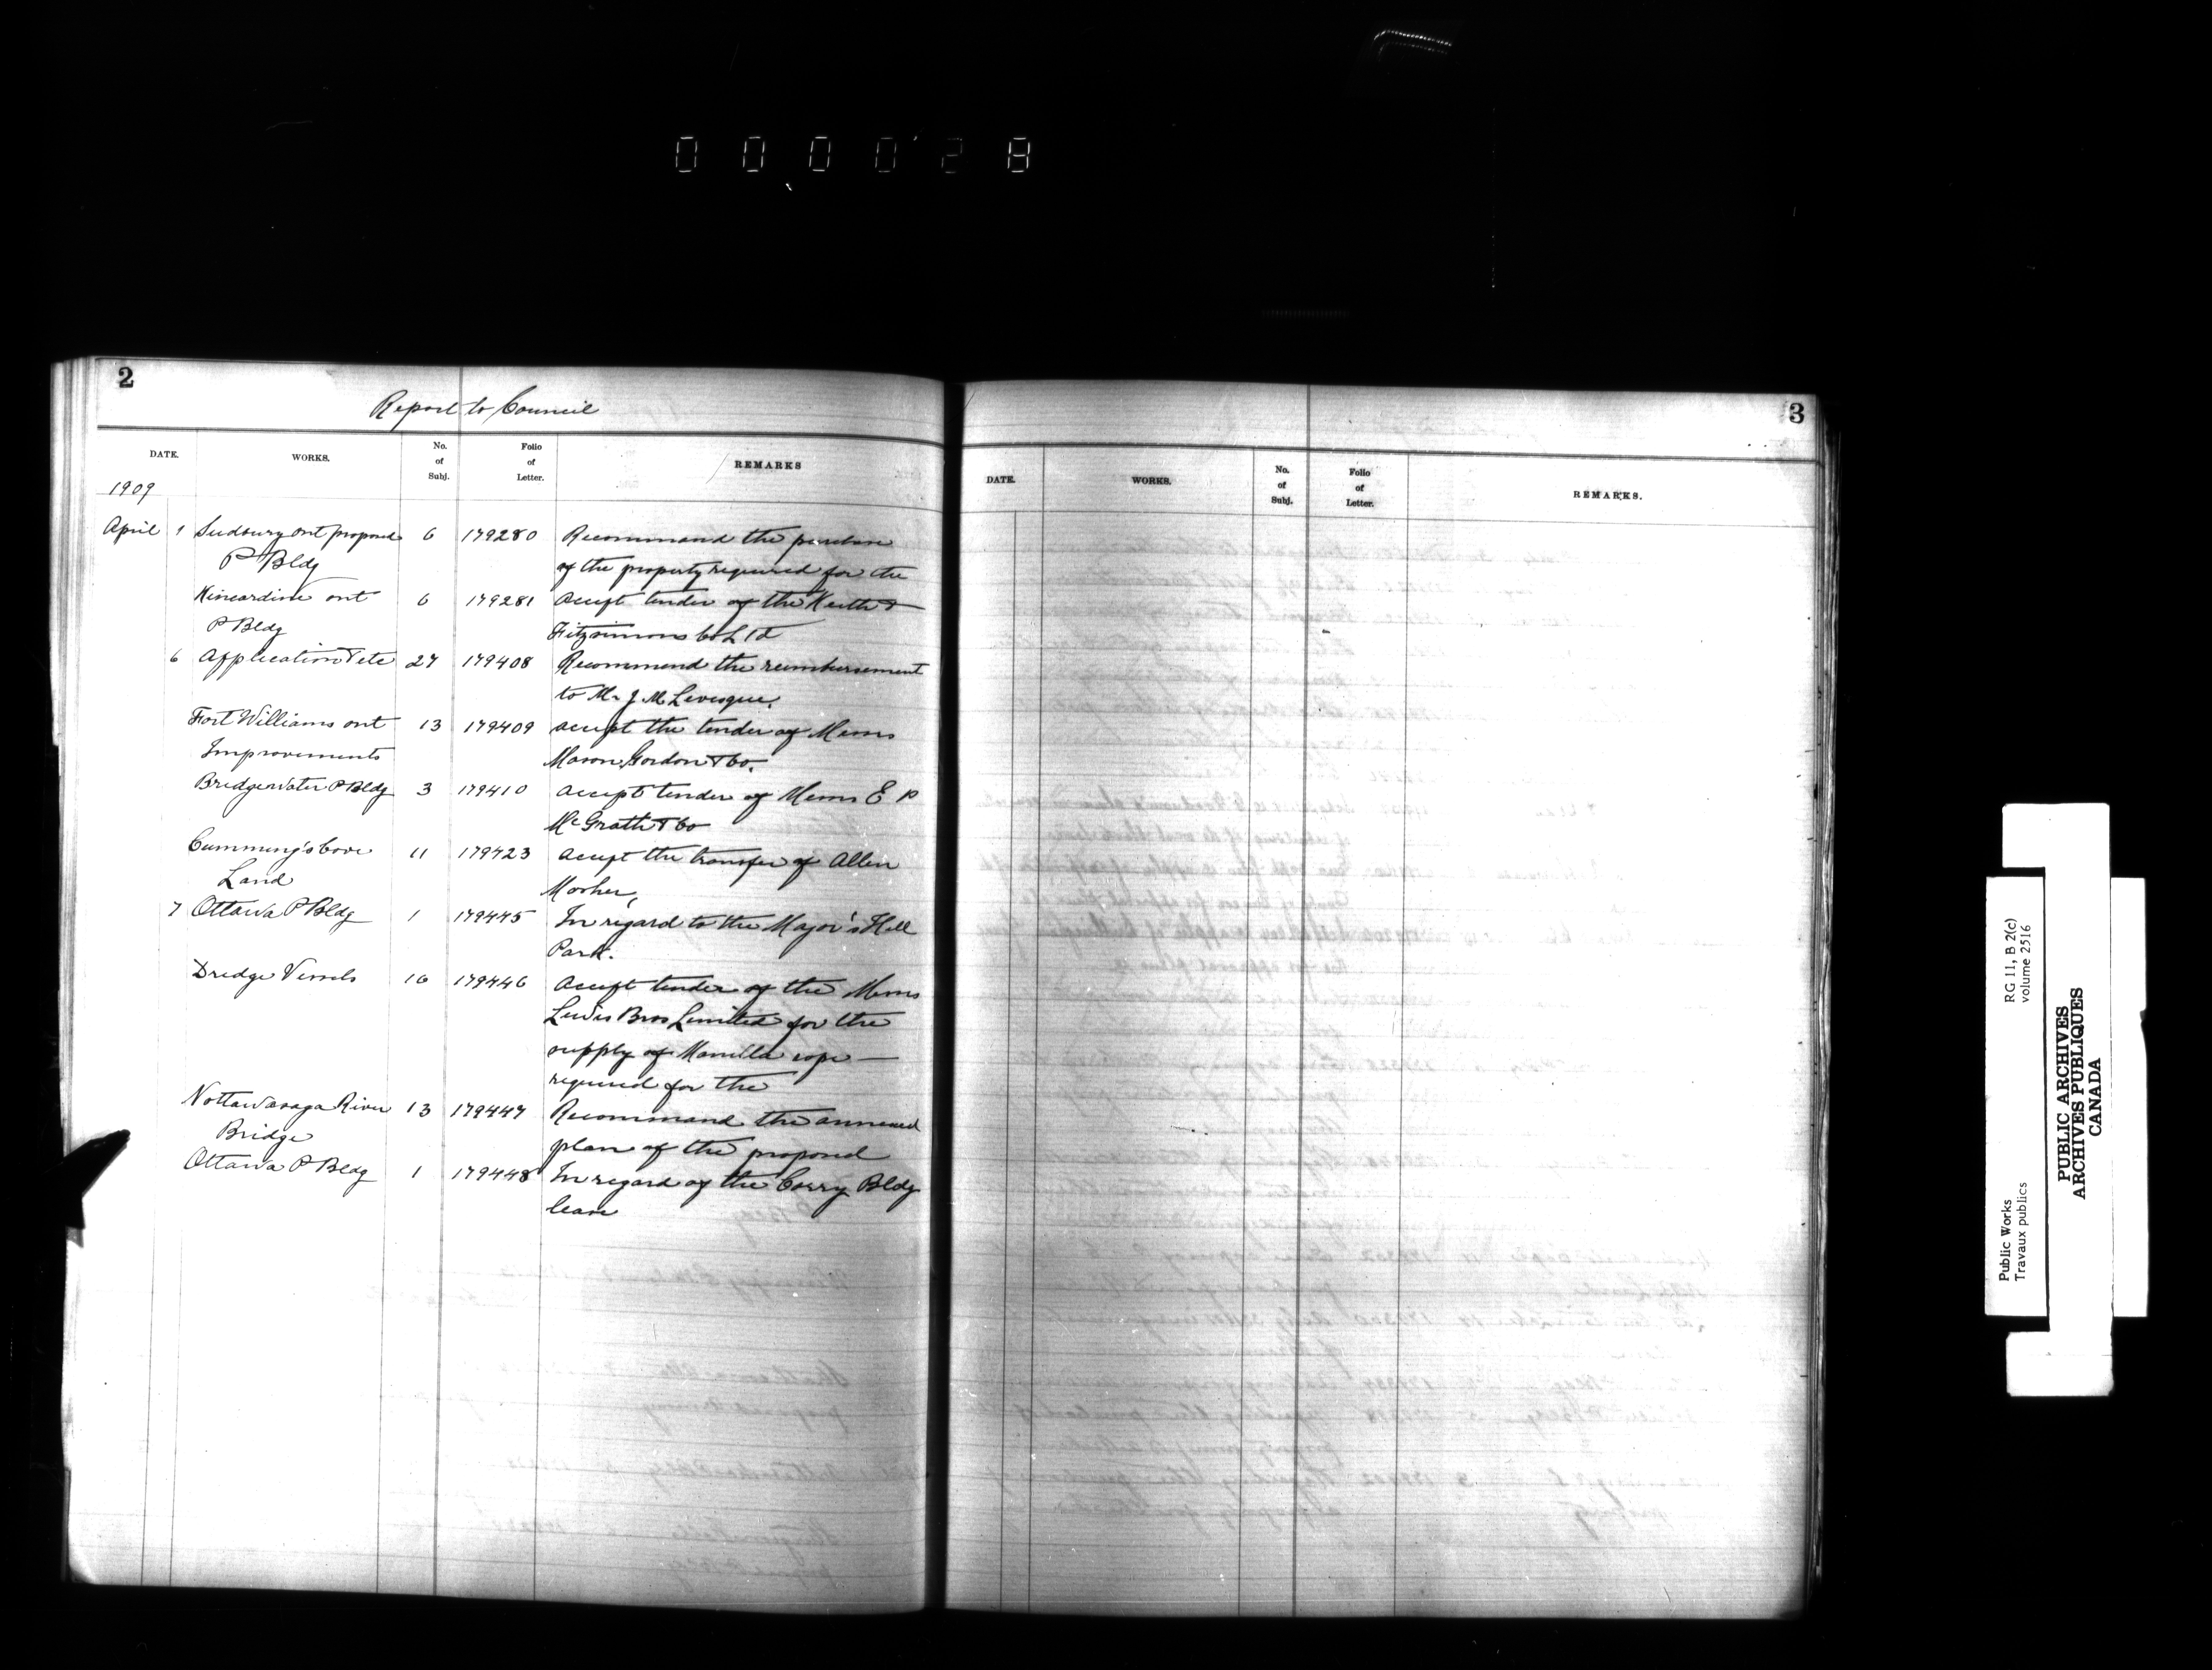 000028
2
Report to Council
DATE. WORKS. No. of Subj. Folio of Letter. REMARKS
1909
April 1 Sudbury Ont proposed 6 179280 Recommand the purchase
P Bldg of the property required for the
Kincardine Ont 6 179281 Accept tender of the Keith &
P Bldg Fitzsimmons Co Ltd
6 Application & etc 27 179408 Recommend the reimbursement
to Mr J. M. Levesque.
Fort Williams Ont 13 179409 accept the tender of Messrs
Improvements Mason Gordon & Co.
Bridgewater P Bldg 3 179410 Accept tender of Messrs E P
McGrath & Co
Cumming's Cove 11 179423 Accept the transfer of Allen
Land Mosher,
7 Ottawa P Bldg 1 179445 In regard to the Major's Hill
Park.
Dredge Vessels 16 179446 Accept tender of the Messrs
Lewis Bros Limited for the
supply of Manilla rope —
required for the
Nottawasaga River 13 179447 Recommand the annexed
Bridge plan of the proposed
Ottawa P Bldg 1 179448 In regard of the Corry Bldg
lease
3
DATE. WORKS. No. of Subj. Folio of Letter. REMARKS.
Public Works
Travaux publics
RG 11, B 2(c)
volume 2516
PUBLIC ARCHIVES
ARCHIVES PUBLIQUES
CANADA